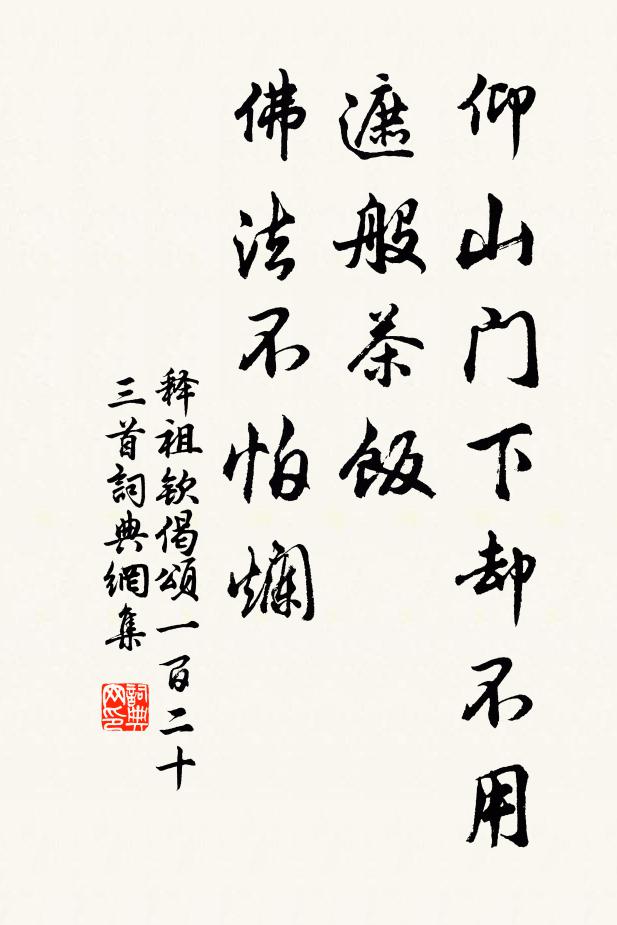 仰山门下却不用
遮般茶飯
佛法不怕爛
释祖钦偈頌一百二十
三首詞典網集
詞典网印